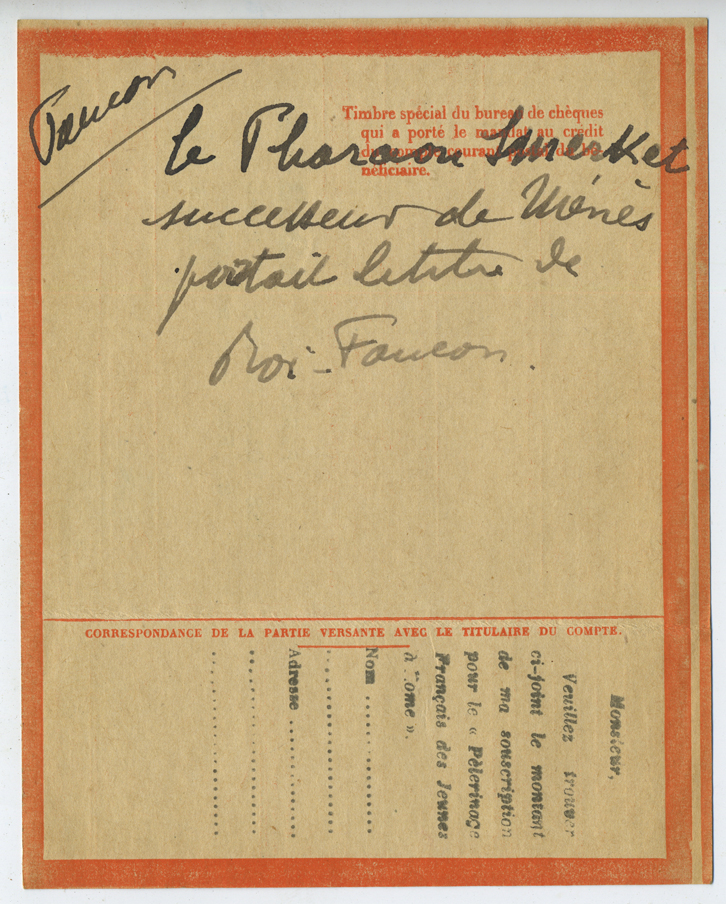 Faucon
Timbre spécial du bureau de chèques
qui a porté le mandat au crédit
du compte courant postal du bé-
néficiaire.
le Pharaon Smerket
successeur de Ménès
portait le titre de
Roi-Faucon.
CORRESPONDANCE DE LA PARTIE VERSANTE AVEC LE TITULAIRE DU COMPTE.
Monsieur,
Veuillez trouver
ci-joint le montant
de ma souscription
pour le « Pèlerinage
Français des Jeunes
à Rome ».
Nom ..........
..........
Adresse ..........
..........
..........